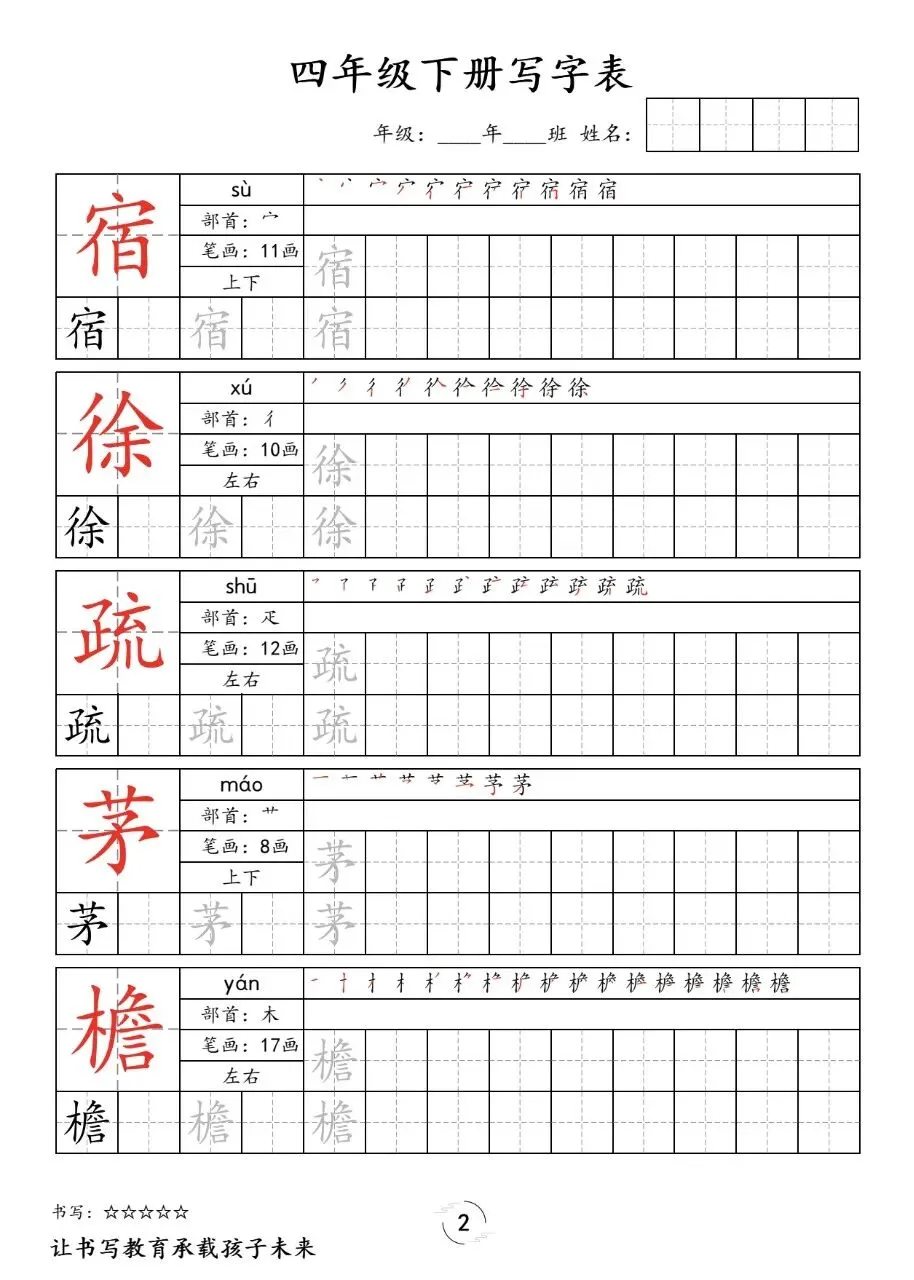 四年级下册写字表
年级：____年____班 姓名：
宿
sù
部首：宀
笔画：11画
上下
宿 宿 宿
宿
徐
xú
部首：彳
笔画：10画
左右
徐 徐 徐
徐
疏
shū
部首：疋
笔画：12画
左右
疏 疏 疏
疏
茅
máo
部首：艹
笔画：8画
上下
茅 茅 茅
茅
檐
yán
部首：木
笔画：17画
左右
檐 檐 檐
檐
书写：☆☆☆☆☆
2
让书写教育承载孩子未来